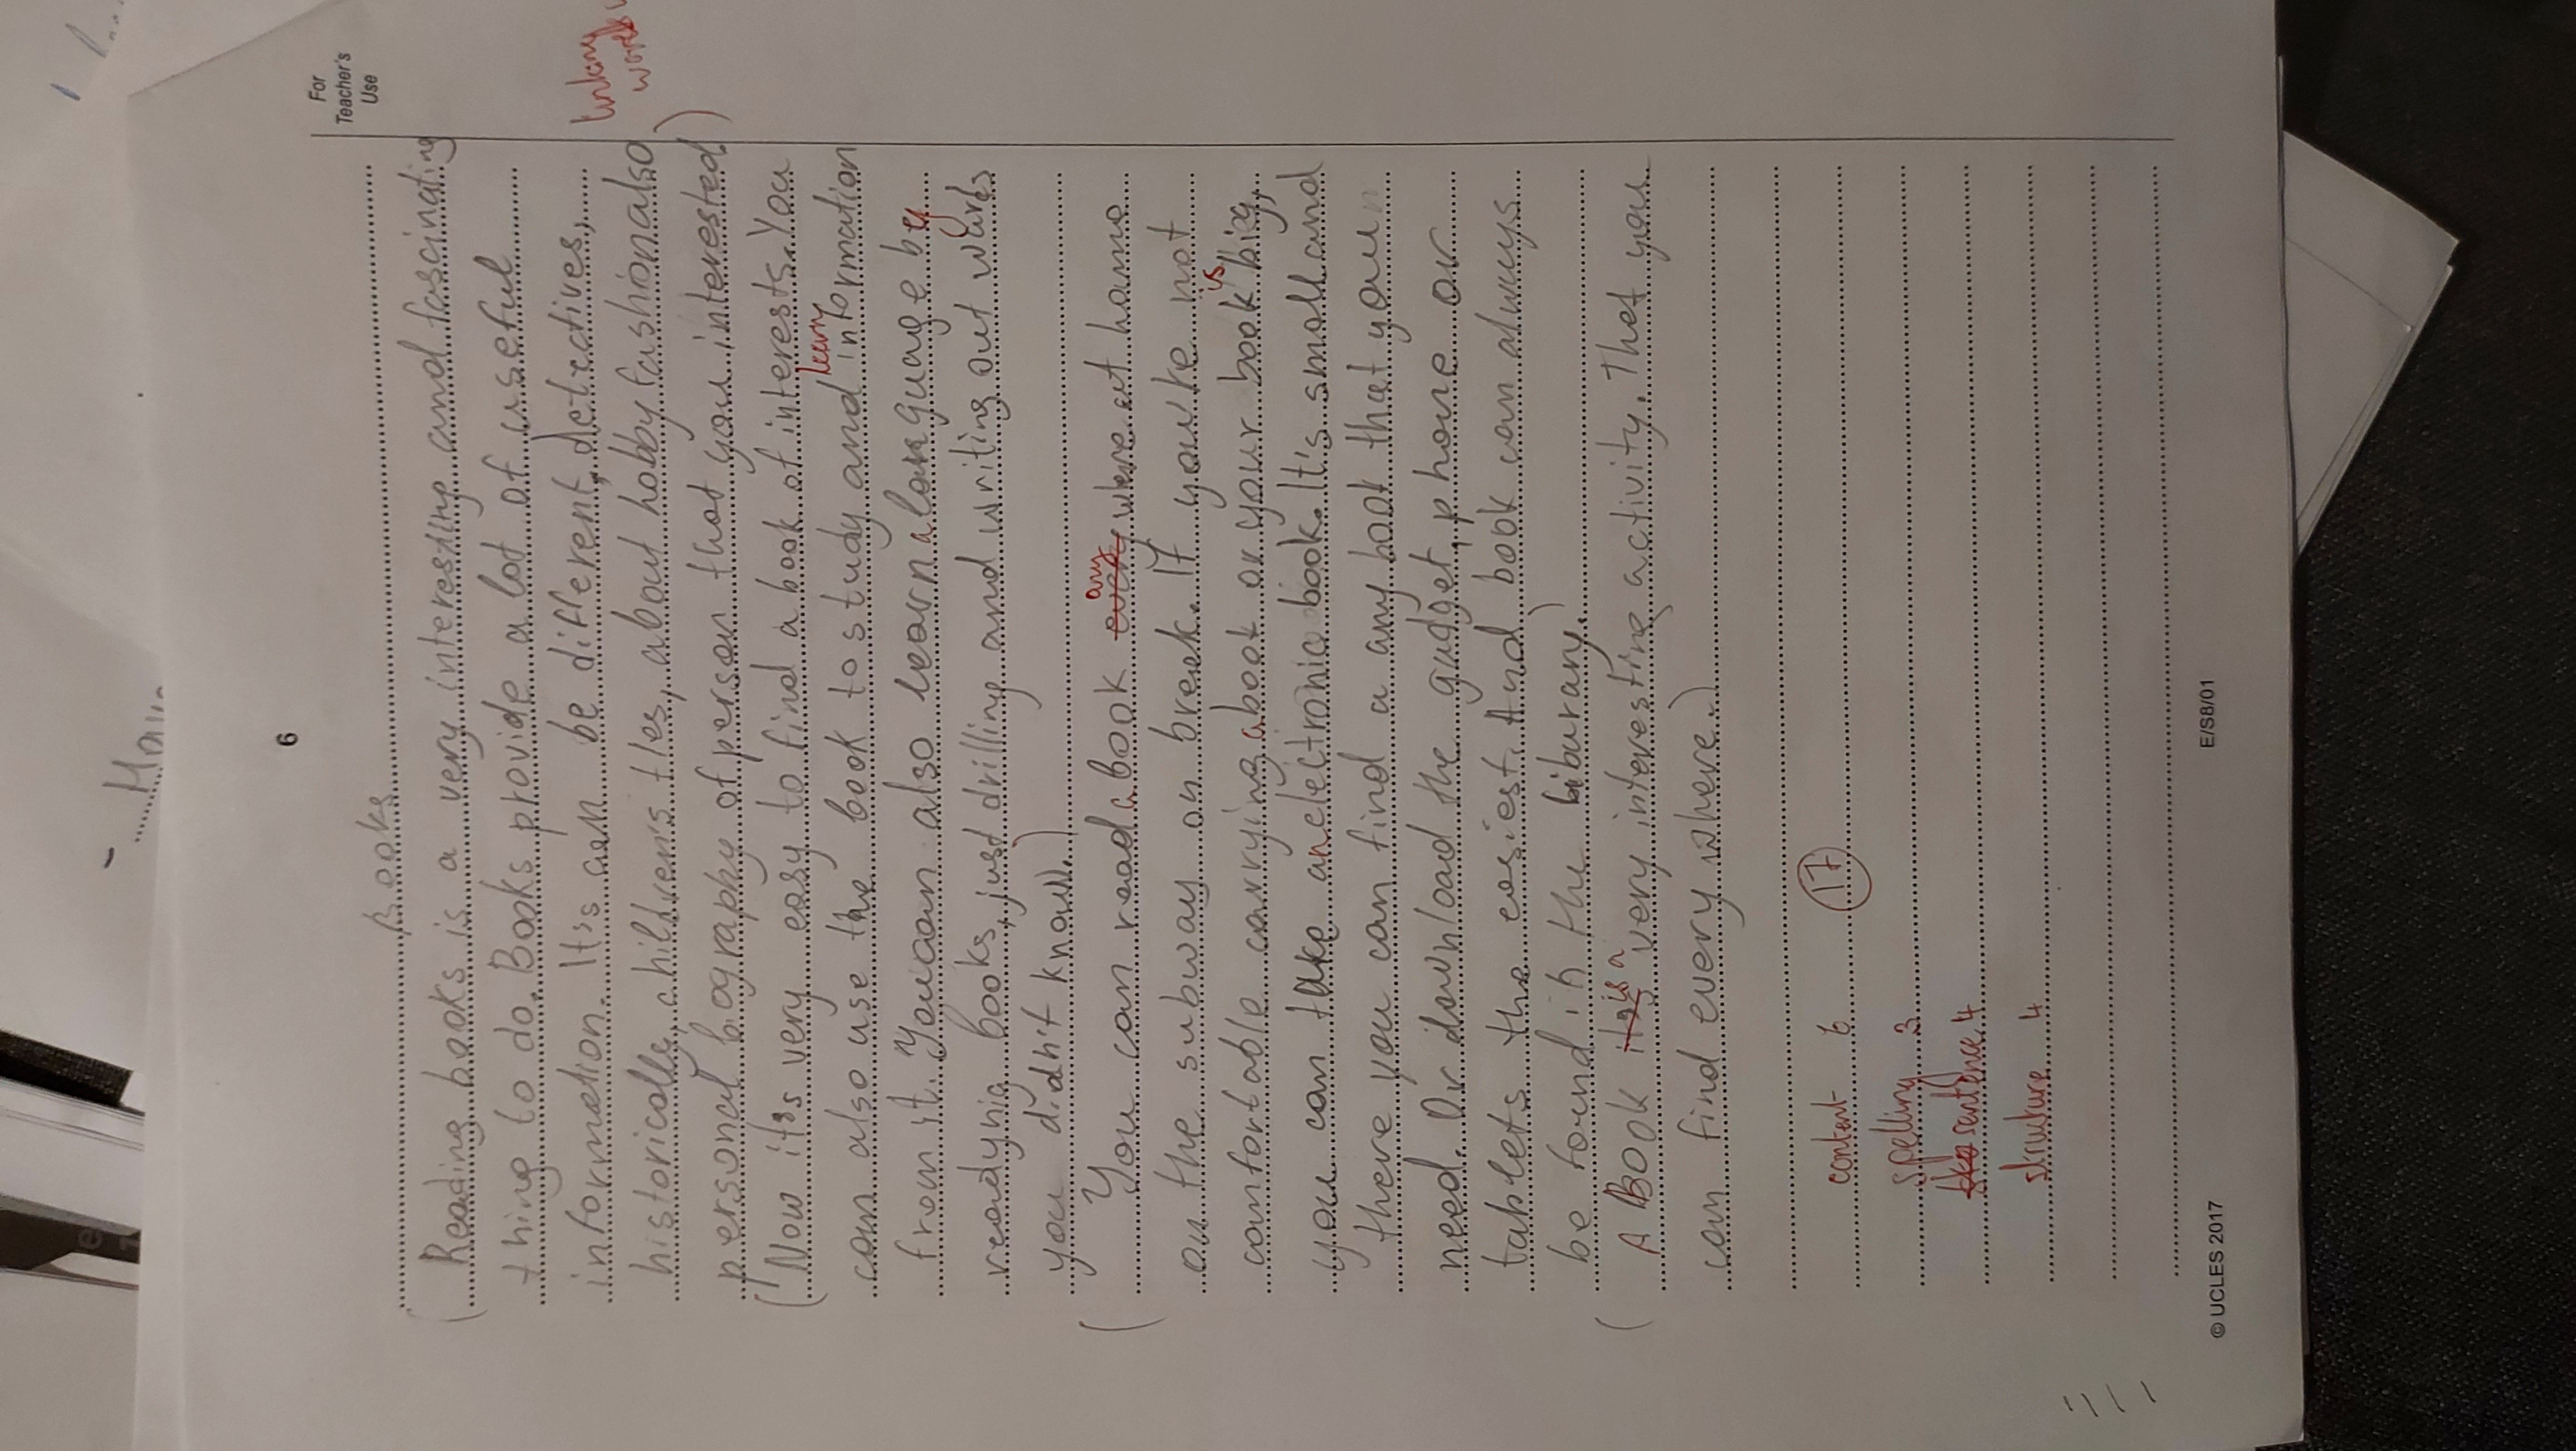 Hav
6
For
Teacher's
Use
Books
Reading books is a very interesting and fascinating
thing to do. Books provide a lot of useful
information. It's can be different, detectives,
historically, children's tles, about hobby fashion also
linking
words
personal biography of person that you interested.
(Now it's very easy to find a book of interests. You
learn
can also use the book to study and information
from it. You can also learn a language by
readynig books, just drilling and writing out words
you didn't know.)
any
( You can read a book every where at home
on the subway on break. If you're not
is
comfortable carrying a book or your book big,
you can take an electronic book. It's small and
there you can find a any book that you
need. Or download the gadget, phone or
tablets the easiest. And book can always
be found in the liburary.)
is a
( A Book it's very interesting activity. That you
can find every where.)
content 6 17
spelling 3
sentence 4
structure 4
© UCLES 2017
E/S8/01